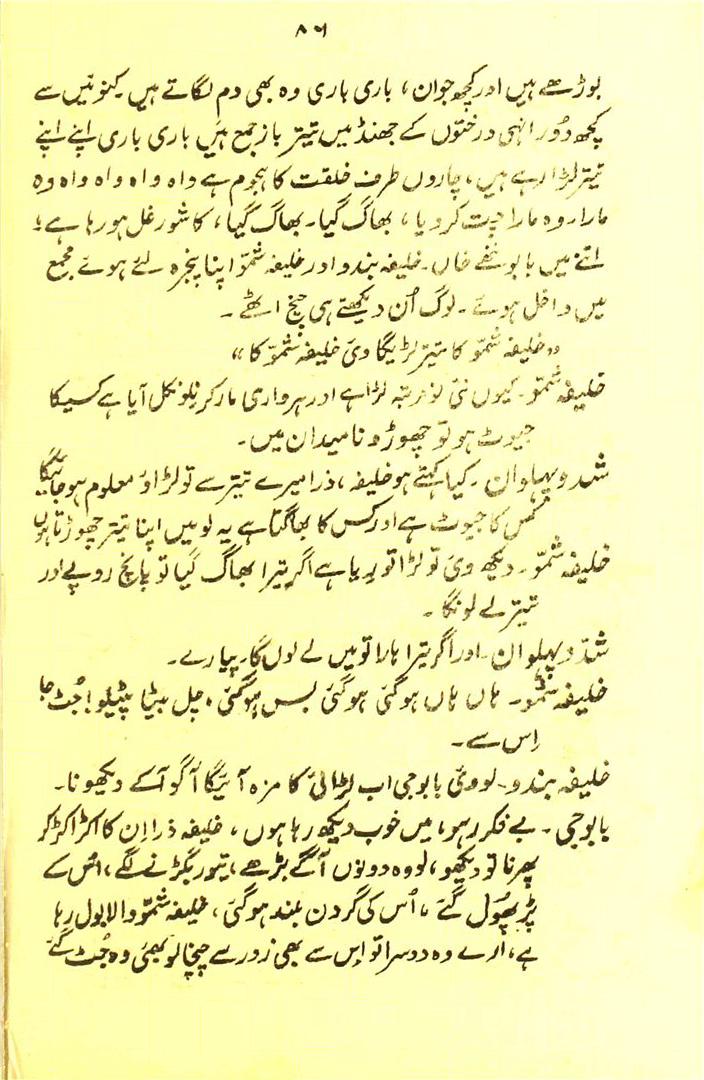 ۸۶
بوڑھے ہیں اور کچھ جوان، باری باری وہ بھی دم لگاتے ہیں کنوئیں سے
کچھ دُور انہی درختوں کے جھنڈ میں تیتر باز جمع ہیں باری باری اپنے اپنے
تیتر لڑا رہے ہیں، چاروں طرف خلقت کا ہجوم ہے واہ واہ واہ واہ وہ
مارا۔ وہ مارا چت کر دیا، بھاگ گیا۔ بھاگ گیا، کا شور غل ہو رہا ہے؛
اتنے میں بابو ننھے خاں۔ خلیفہ بندو اور خلیفہ شمّو اپنا پنجرہ لئے ہوئے مجمع
میں داخل ہوئے۔ لوگ اُن دیکھتے ہی چیخ اٹھے۔
"خلیفہ شمّو کا تیتر لڑیگا وئ خلیفہ شمّو کا"
خلیفہ شمّو۔ کیوں نئ لڑا ہے اور ہر واری مار کر نکل آیا ہے کسیکا
جیوٹ ہو تو چھوڑو نا میدان میں۔
شدو پہلوان۔ کیا کہتے ہو خلیفہ، ذرا میرے تیتر سے تو لڑاؤ معلوم ہو جائیگا
کس کا جیوٹ ہے اور کس کا بھاگتا ہے یہ لو میں اپنا تیتر چھوڑتا ہوں
خلیفہ شمّو۔ دیکھ وئ تو لڑا تو ریا ہے اگر تیرا بھاگ گیا تو پانچ روپے اور
تیتر لے لونگا۔
شدّو پہلوان۔ اور اگر تیرا ہارا تو میں لے لوں گا۔ پیارے۔
خلیفہ شمّو۔ ہاں ہاں ہو گئی ہو گئی بس ہو گئی۔ چل بیٹا پٹیلو! جُٹ جا
اِس سے۔
خلیفہ بندو۔ لو وئ بابو جی اب لڑائی کا مزہ آئیگا آگو آکے دیکھو نا۔
بابو جی۔ بے فکر رہو، میں خوب دیکھ رہا ہوں، خلیفہ ذرا اِن کا اکڑ اکڑ کر
پھرنا تو دیکھو، لو وہ دونوں آگے بڑھے، تیور بگڑنے لگے، اُس کے
پَر پھُول گئے، اُس کی گردن بلند ہو گئی، خلیفہ شمّو والا بول رہا
ہے، ارے وہ دوسرا تو اِس سے بھی زور سے چیخا لو بھئی وہ جُٹ گئے